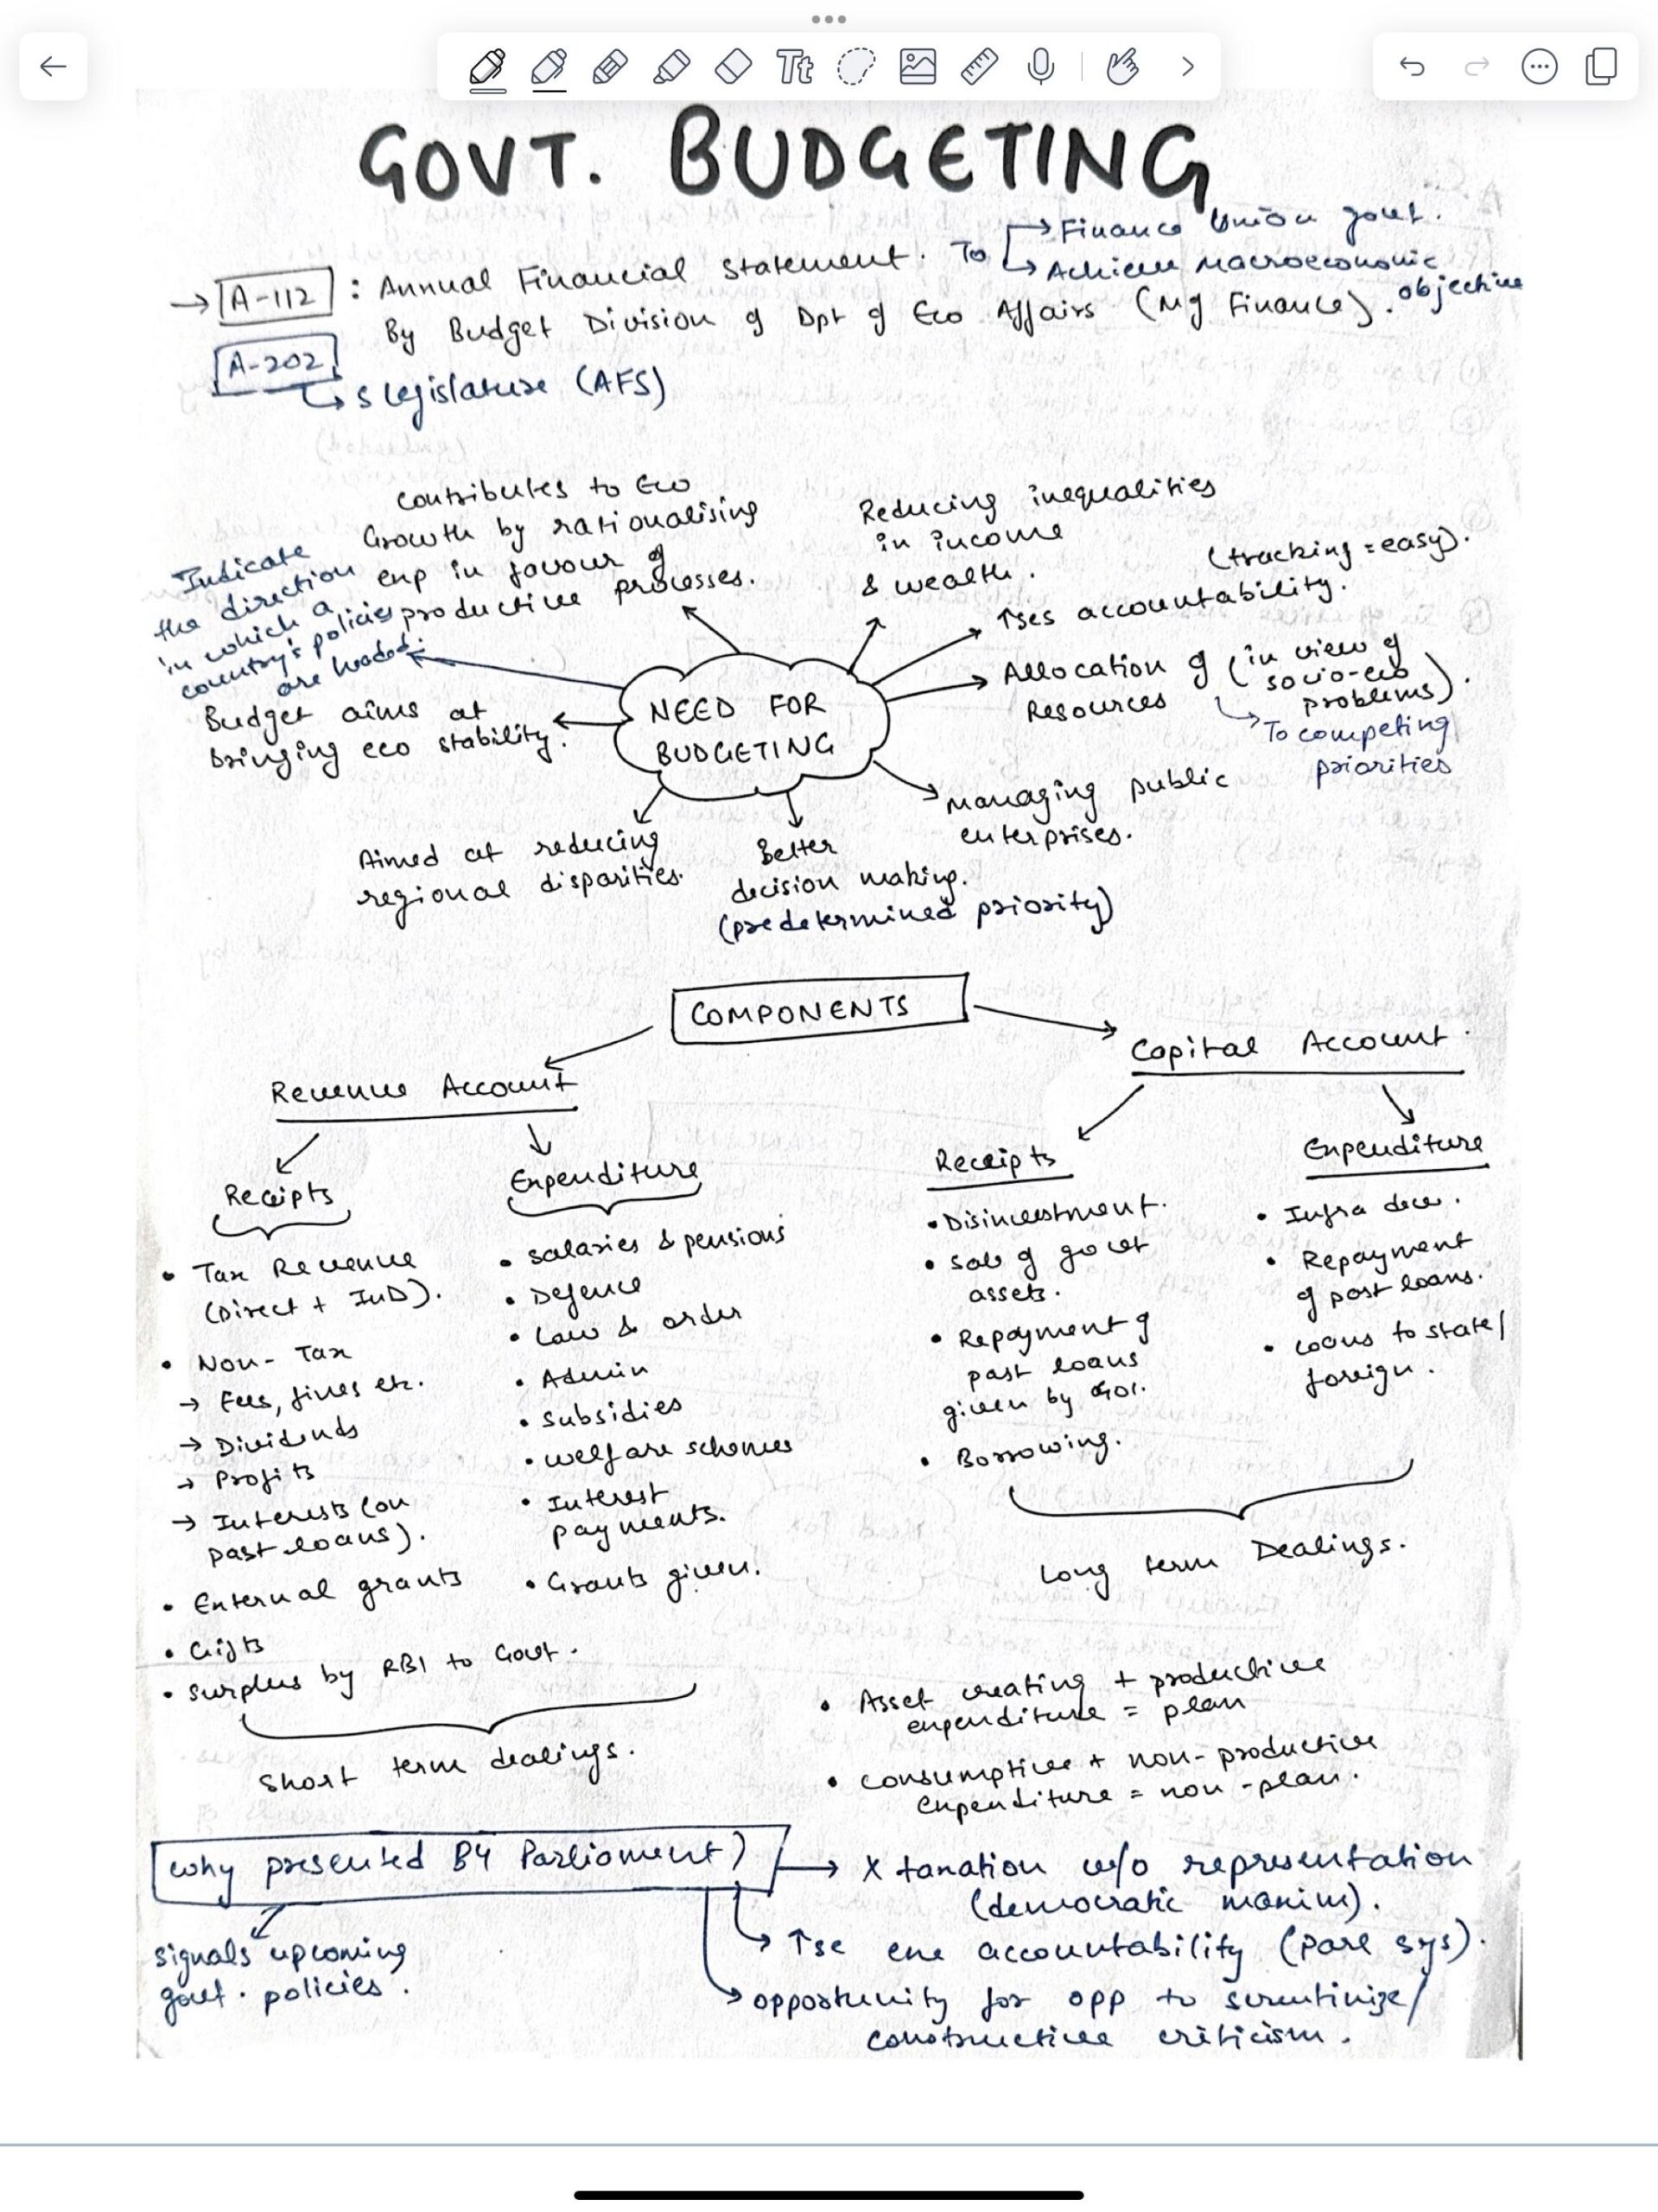 GOVT. BUDGETING
→ A-112 : Annual Financial Statement. To → Finance Union govt.
→ Achieve Macroeconomic objective
By Budget Division of Dpt of Eco Affairs (M of Finance).
A-202
↳ S legislature (AFS)
Contributes to Eco
Growth by rationalising
exp in favour of
productive processes.
Reducing inequalities
in income
& wealth.
(tracking = easy).
↑ses accountability.
Indicate
the direction
in which a
country's policies
are headed.
Allocation of
Resources
(in view of
socio-eco
problems).
↳ To competing
priorities
NEED FOR
BUDGETING
Budget aims at
bringing eco stability.
Managing public
enterprises.
Aimed at reducing
regional disparities.
Better
decision making.
(predetermined priority)
COMPONENTS
Revenue Account
Capital Account
Receipts
Expenditure
Receipts
Expenditure
• Tax Revenue
(Direct + InD).
• Non-Tax
→ Fees, fines etc.
→ Dividends
→ Profits
→ Interests (on
past loans).
• External grants
• Gifts
• Surplus by RBI to Govt.
• Salaries & pensions
• Defence
• Law & order
• Admin
• Subsidies
• Welfare schemes
• Interest
payments.
• Grants given.
Short term dealings.
• Disinvestment.
• Sale of govt
assets.
• Repayment of
past loans
given by GOI.
• Borrowing.
• Infra dev.
• Repayment
of past loans.
• Loans to state/
foreign.
Long term Dealings.
• Asset creating + productive
expenditure = plan
• Consumptive + non-productive
expenditure = non-plan.
Why presented BY Parliament?
→ X taxation w/o representation
(democratic maxim).
↳ ↑se exe accountability (parl sys).
↳ opportunity for opp to scrutinize/
constructive criticism.
signals upcoming
govt. policies.